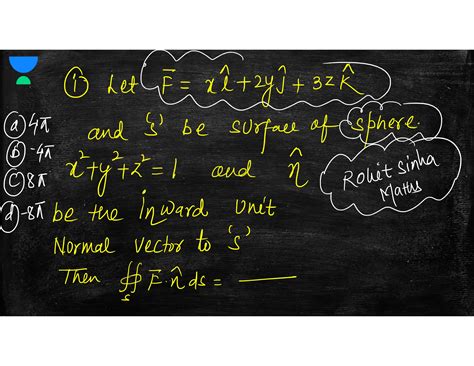 ① Let F⃗ = xî + 2yĵ + 3zk̂
and 'S' be surface of sphere.
x² + y² + z² = 1 and n̂
be the inward unit
Normal vector to 'S'
Then ∯ₛ F⃗·n̂ ds = ———
ⓐ 4π
ⓑ -4π
ⓒ 8π
ⓓ -8π
Rohit Sinha
Maths